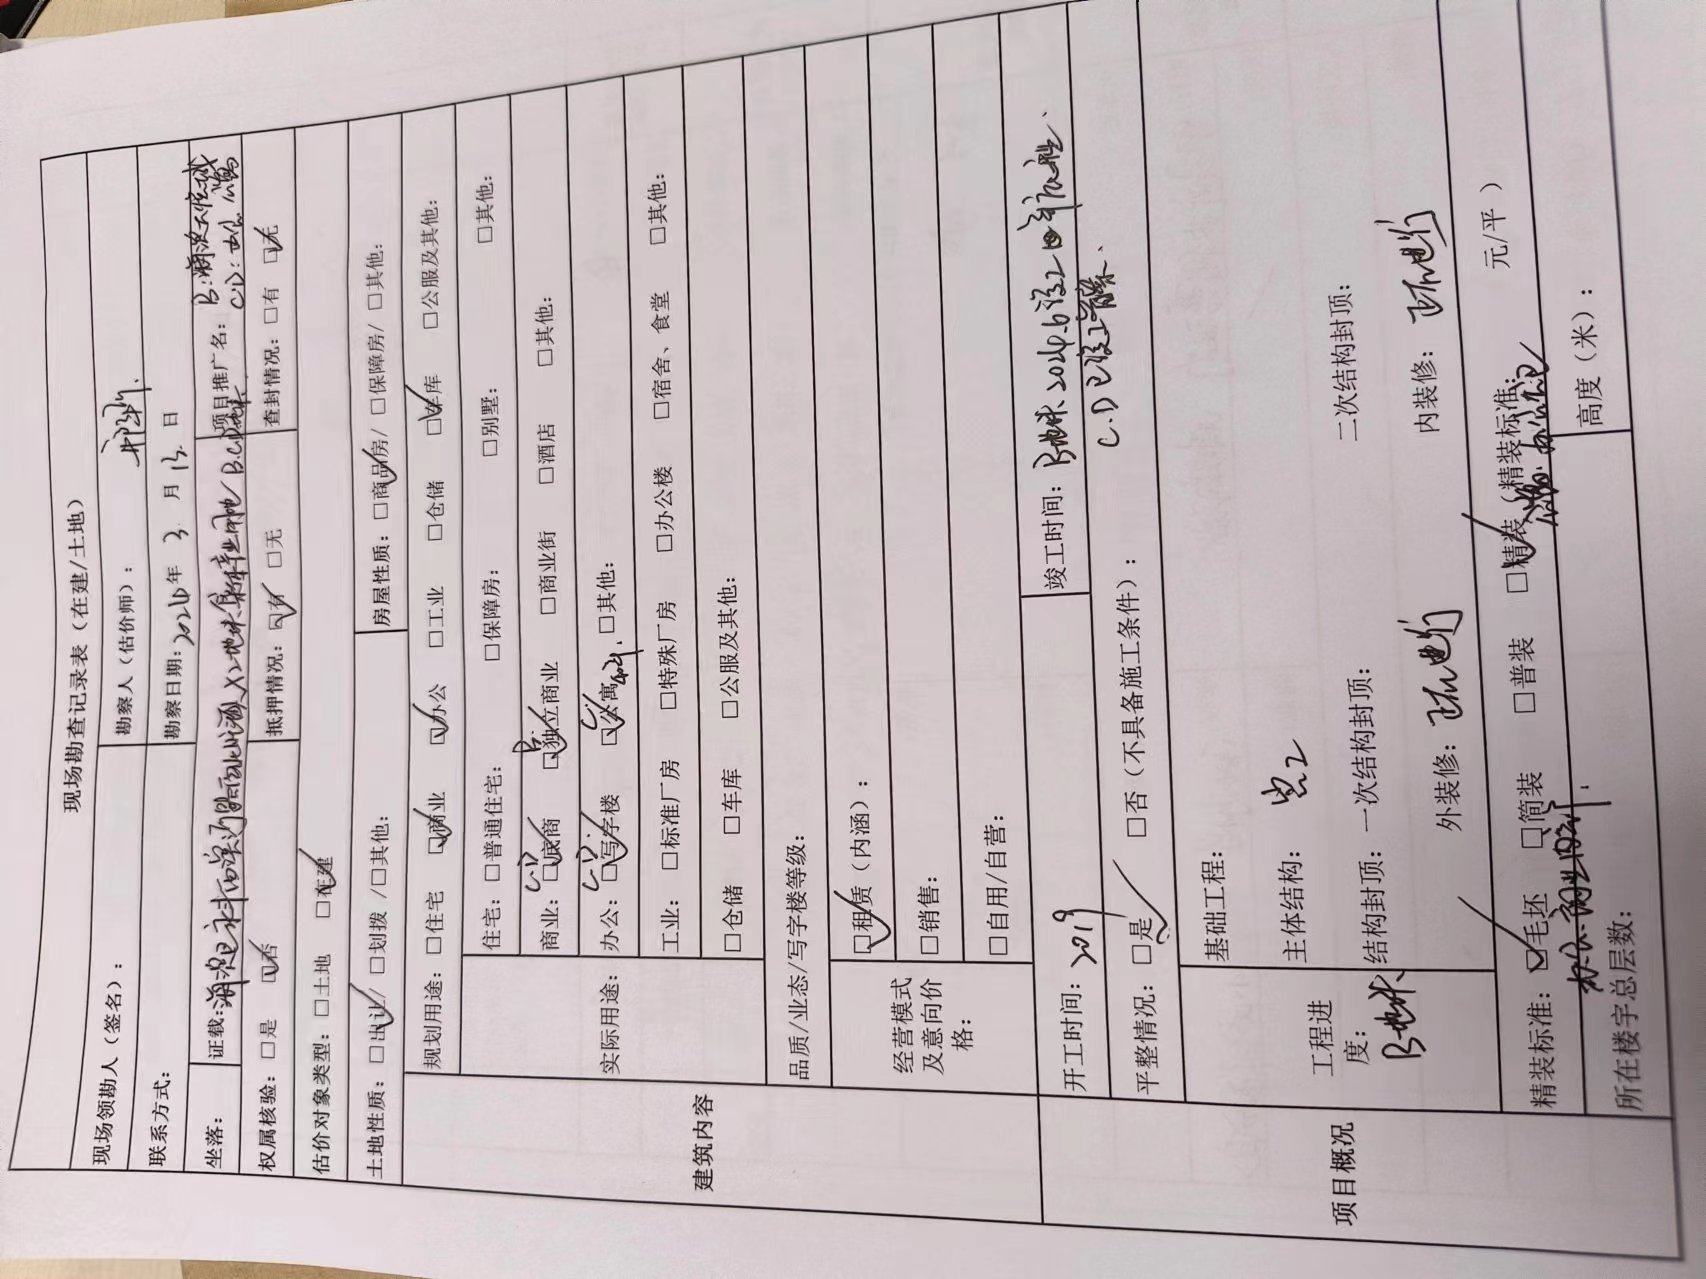 现场勘查记录表（在建/土地）
现场领勘人（签名）： 勘察人（估价师）：
联系方式： 勘察日期：2024年 3 月 13 日
坐落： 证载： 项目推广名： B:
C.D:
权属核验：□是 □否 抵押情况：□有 □无 查封情况：□有 □无
估价对象类型：□土地 □在建
土地性质：□出让/ □划拨 /□其他： 房屋性质：□商品房/ □保障房/ □其他：
建筑内容
规划用途：□住宅 □商业 □办公 □工业 □仓储 □车库 □公服及其他：
实际用途：
住宅：□普通住宅： □保障房： □别墅： □其他：
商业：□底商 □独立商业 □商业街 □酒店 □其他：
C.D B.
办公：□写字楼 □公寓 □其他：
C.D
工业：□标准厂房 □特殊厂房 □办公楼 □宿舍、食堂 □其他：
□仓储 □车库 □公服及其他：
品质/业态/写字楼等级：
经营模式及意向价格：
□租赁（内涵）：
□销售：
□自用/自营：
项目概况
开工时间：2019 竣工时间：B地块、2024.6
C.D已竣工
平整情况：□是 □否（不具备施工条件）：
工程进度：
B地块
基础工程：
主体结构：完工
结构封顶：一次结构封顶： 二次结构封顶：
外装修： 内装修：
精装标准：□毛坯 □简装 □普装 □精装（精装标准： 元/平）
所在楼宇总层数： 高度（米）：